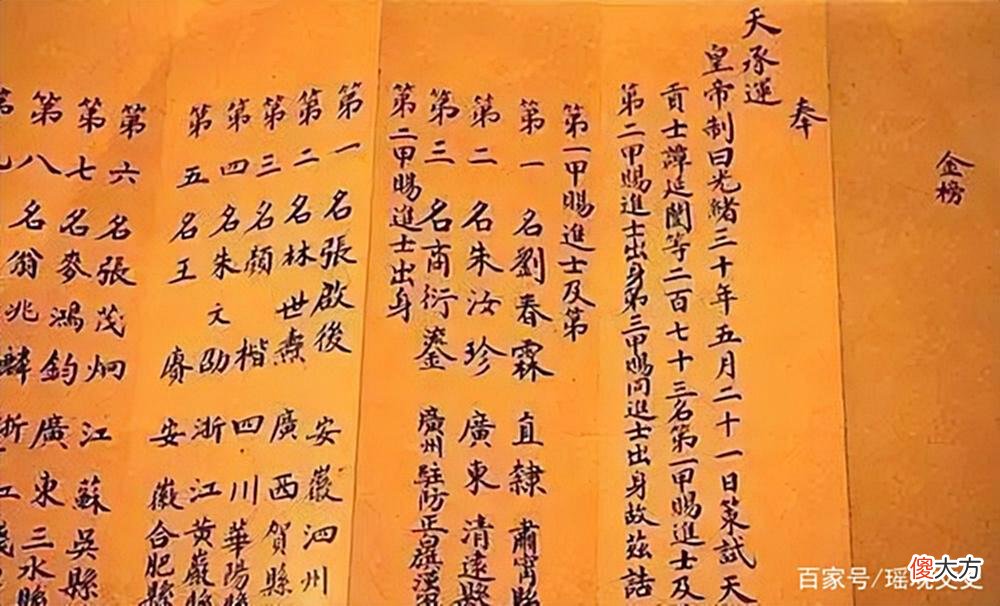 金榜
奉
天承運
皇帝制曰光緒三十年五月二十一日策試天
貢士譚延闓等二百七十三名第一甲賜進士及
第二甲賜進士出身第三甲賜同進士出身故茲誥
第一甲賜進士及第
第一名劉春霖 直隸肅寧縣
第二名朱汝珍 廣東清遠縣
第三名商衍鎏 廣州駐防正白旗漢
第二甲賜進士出身
第一名張啟後 安徽泗州
第二名林世燾 廣西賀縣
第三名顏楷 四川華陽縣
第四名朱文劭 浙江黃巖縣
第五名王賡 安徽合肥縣
第六名張茂炯 江蘇吳縣
第七名麥鴻鈞 廣東三水縣
第八名翁兆麟 浙江
第九
百家号/瑶
傻大方